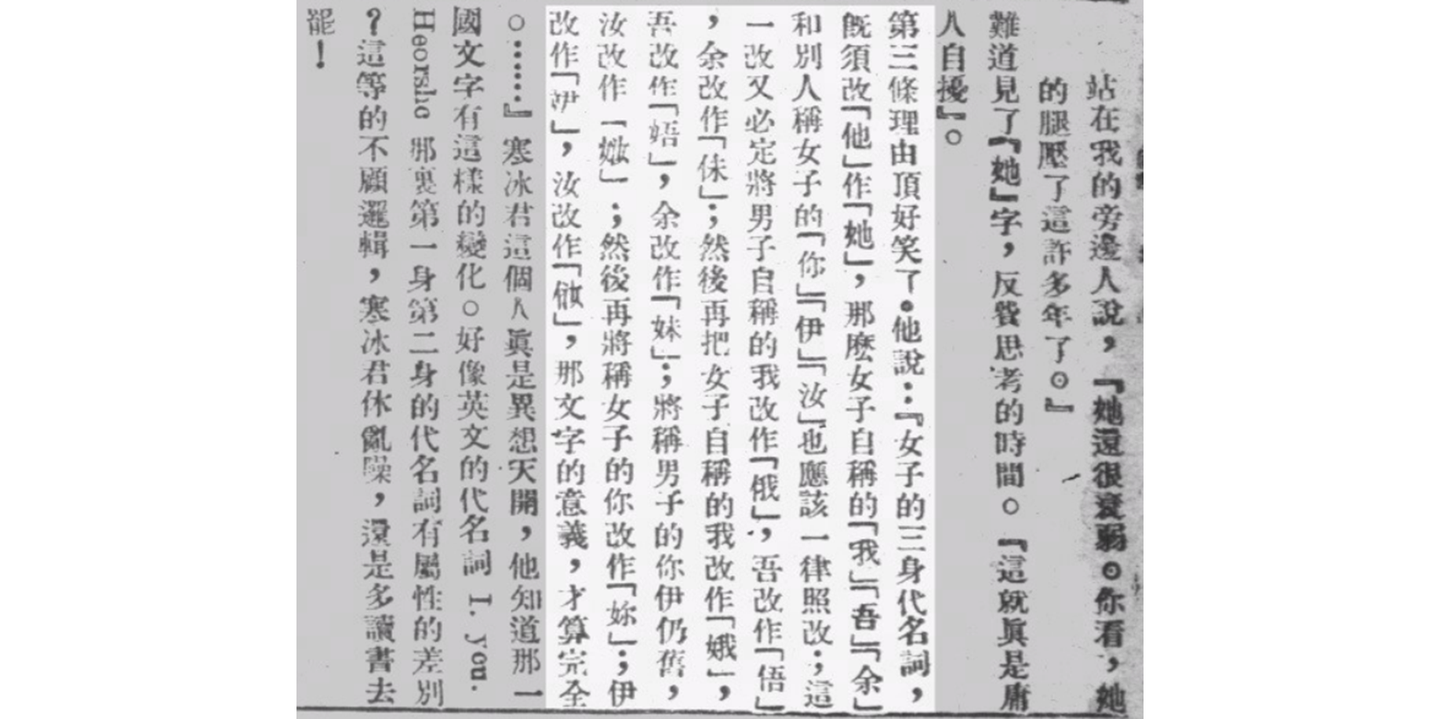 站在我的旁邊人說，『她還很衰弱。你看，她
的腿壓了這許多年了。』
難道見了『她』字，反費思考的時間。『這就眞是庸
人自擾』。
第三條理由頂好笑了。他說：『女子的三身代名詞，
旣須改「他」作「她」，那麽女子自稱的「我」「吾」「余」
和別人稱女子的「你」「伊」「汝」也應該一律照改；這
一改又必定將男子自稱的我改作「俄」，吾改作「俉」
，余改作「佅」；然後再把女子自稱的我改作「娥」，
吾改作「娪」，余改作「妹」；將稱男子的你伊仍舊，
汝改作「」；然後再將稱女子的你改作「妳」；伊
改作「」，汝改作「」，那文字的意義，才算完全
。……』寒冰君這個人眞是異想天開，他知道那一
國文字有這樣的變化。好像英文的代名詞 I. you.
Heorshe 那裏第一身第二身的代名詞有屬性的差別
？這等的不顧邏輯，寒冰君休亂噪，還是多讀書去
罷！